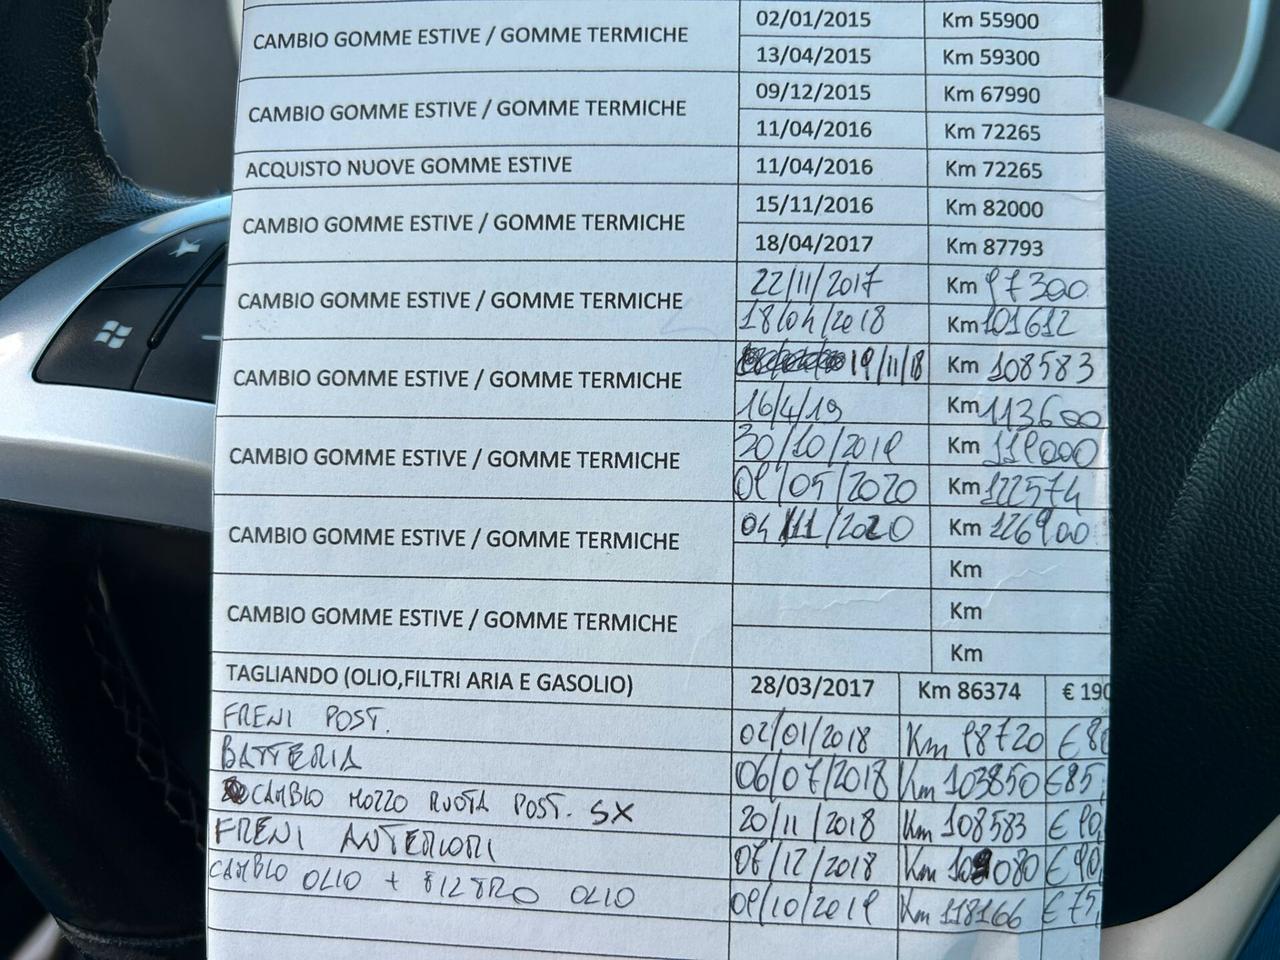 02/01/2015 Km 55900
CAMBIO GOMME ESTIVE / GOMME TERMICHE
13/04/2015 Km 59300
09/12/2015 Km 67990
CAMBIO GOMME ESTIVE / GOMME TERMICHE
11/04/2016 Km 72265
ACQUISTO NUOVE GOMME ESTIVE 11/04/2016 Km 72265
15/11/2016 Km 82000
CAMBIO GOMME ESTIVE / GOMME TERMICHE
18/04/2017 Km 87793
22/11/2017 Km 97300
CAMBIO GOMME ESTIVE / GOMME TERMICHE
18/04/2018 Km 101612
19/11/18 Km 108583
CAMBIO GOMME ESTIVE / GOMME TERMICHE
16/4/19 Km 113600
30/10/2019 Km 119000
CAMBIO GOMME ESTIVE / GOMME TERMICHE
09/05/2020 Km 122574
04/11/2020 Km 126900
CAMBIO GOMME ESTIVE / GOMME TERMICHE
Km
Km
CAMBIO GOMME ESTIVE / GOMME TERMICHE
Km
TAGLIANDO (OLIO,FILTRI ARIA E GASOLIO) 28/03/2017 Km 86374 € 190
FRENI POST. 02/01/2018 Km 98720 € 80
BATTERIA 06/07/2018 Km 103850 € 85,
CAMBIO MOZZO RUOTA POST. SX 20/11/2018 Km 108583 € 90,
FRENI ANTERIORI 07/12/2018 Km 109080 € 90,
CAMBIO OLIO + FILTRO OLIO 09/10/2019 Km 118166 € 75,